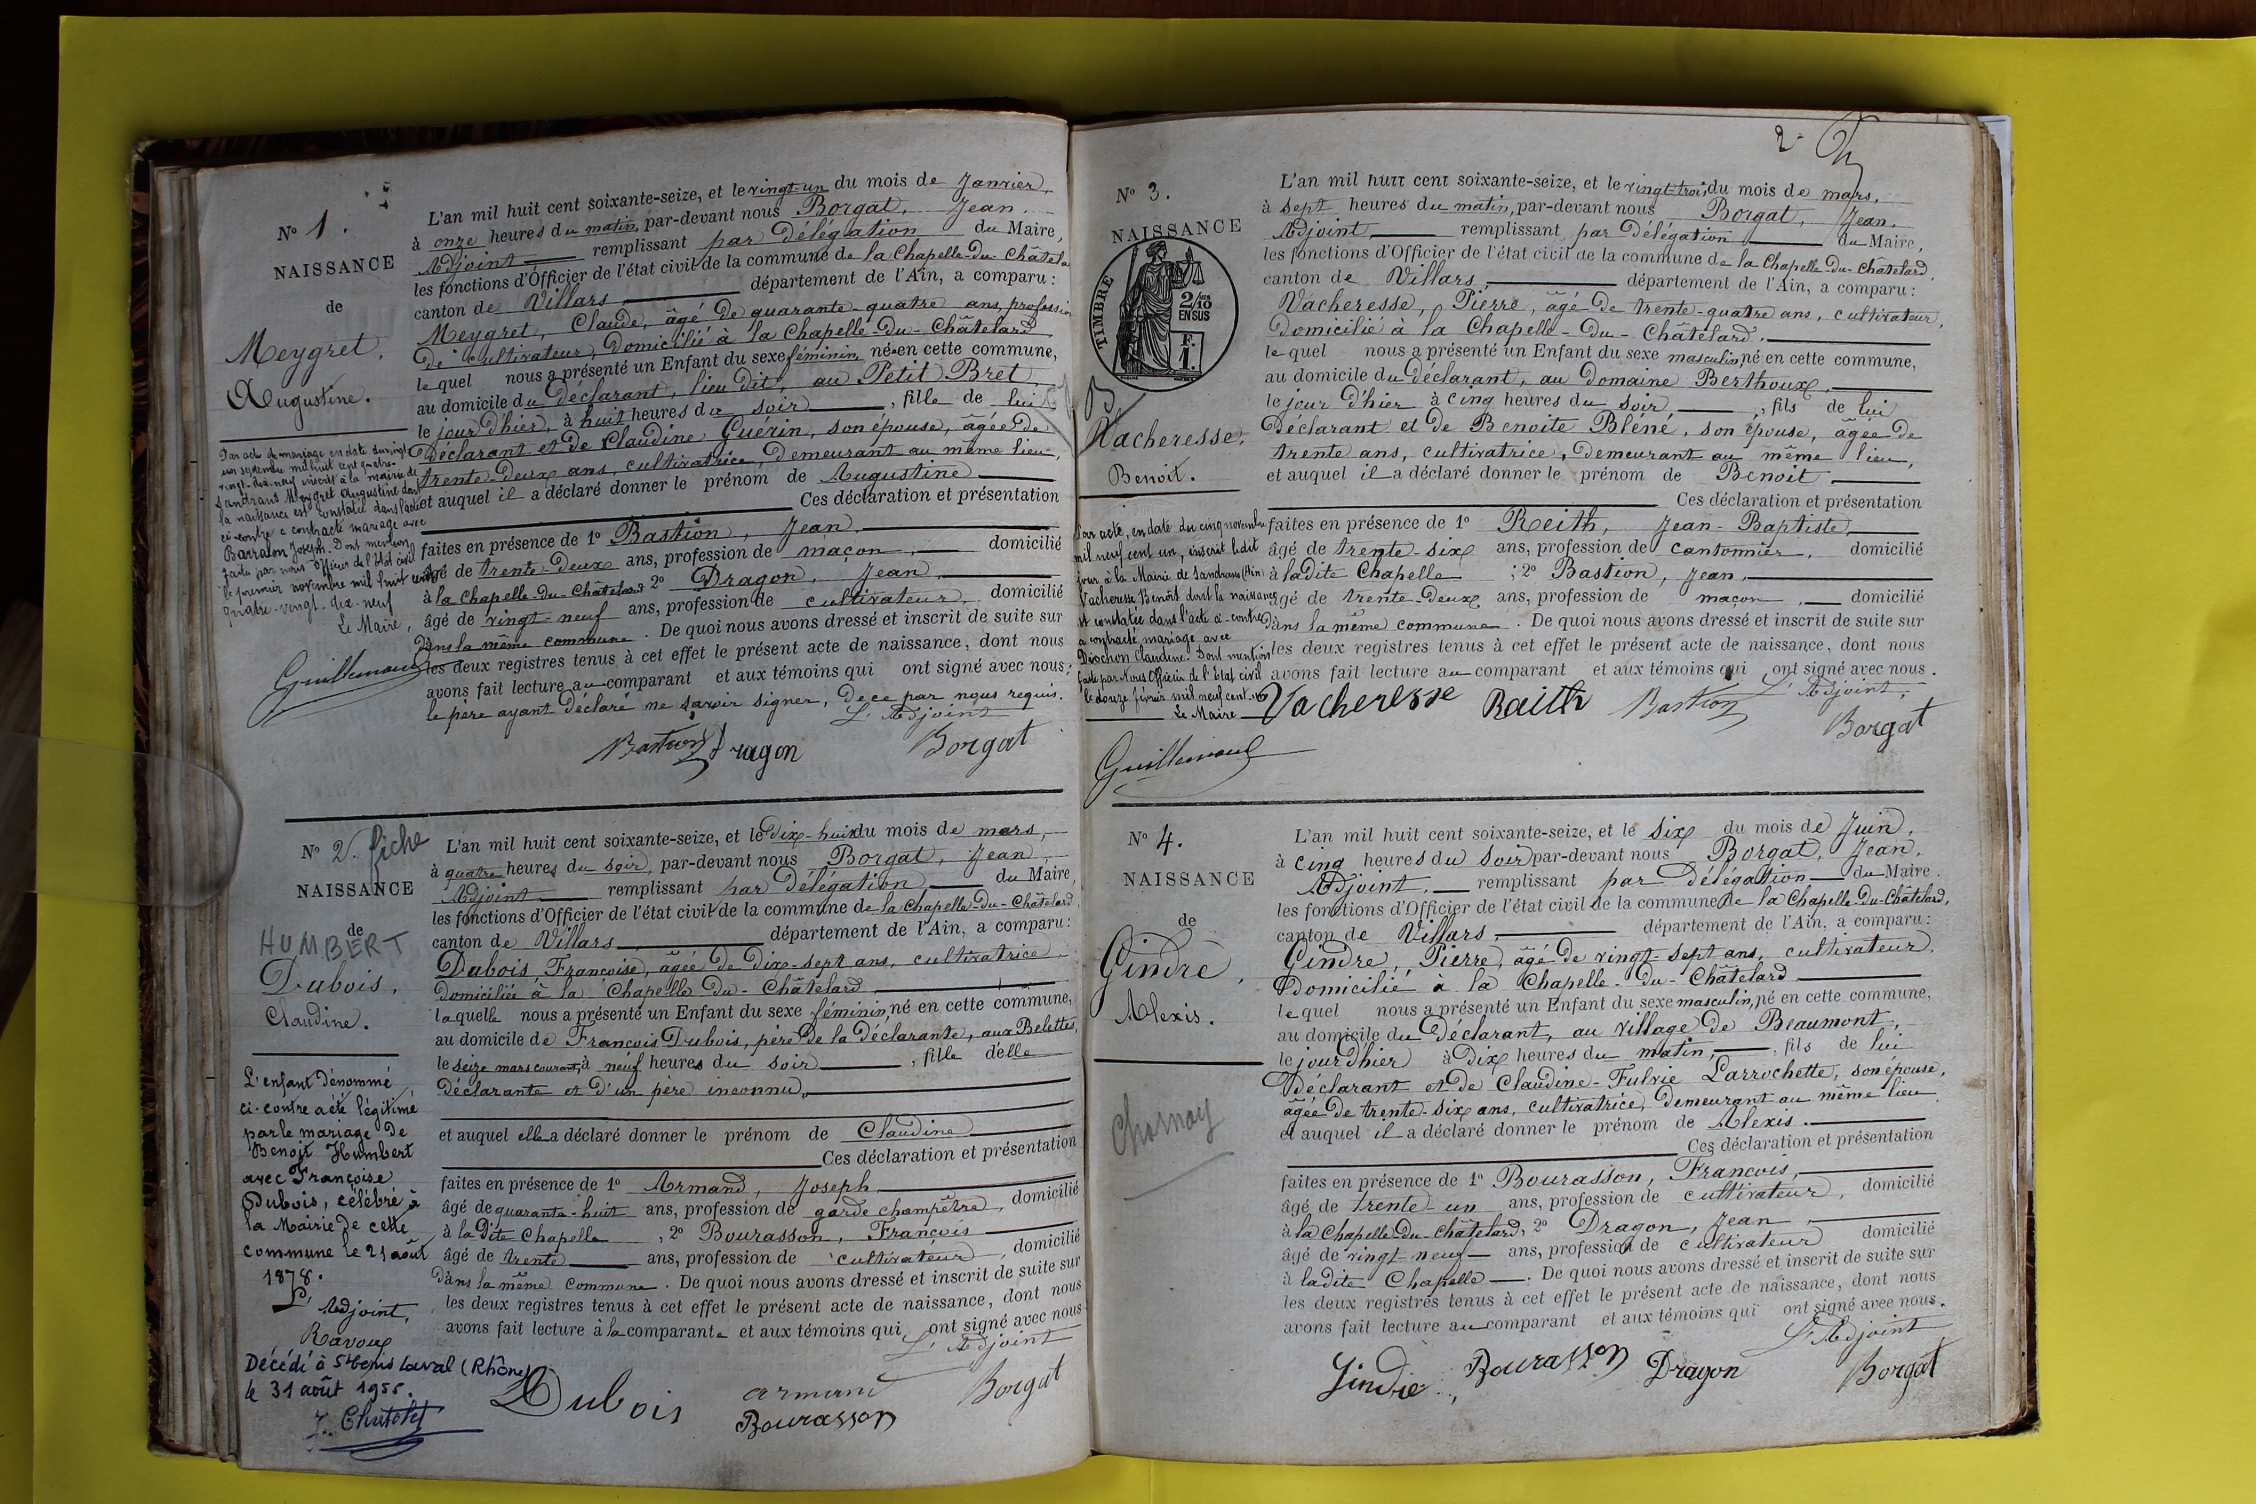 N° 1.
NAISSANCE
de
Meygret,
Augustine.
Par acte de mariage en date du vingt
un septembre mil huit cent quatre-
vingt-dix-neuf inscrit à la mairie de
Sandrans Meygret Augustine dont
la naissance est constatée dans l'acte
ci-contre a contracté mariage avec
Barralon Joseph. Dont mention
faite par nous Officier de l'état civil
le premier novembre mil huit cent
quatre-vingt-dix-neuf
Le Maire,
Guillemaud
L'an mil huit cent soixante-seize, et le vingt-un du mois de Janvier,
à onze heures du matin, par-devant nous Borgat, Jean,
Adjoint remplissant par Délégation du Maire,
les fonctions d'Officier de l'état civil de la commune de la Chapelle-du-Châtela
canton de Villars, département de l'Ain, a comparu :
Meygret, Claude, âgé de quarante-quatre ans, profession
de cultivateur, domicilié à la Chapelle-du-Châtelard
lequel nous a présenté un Enfant du sexe féminin, né en cette commune,
au domicile du Déclarant, lieu dit, au Petit Bret,
le jour d'hier, à huit heures du soir, fille de lui
Déclarant et de Claudine Guérin, son épouse, âgée de
trente-deux ans, cultivatrice, demeurant au même lieu,
et auquel il a déclaré donner le prénom de Augustine
Ces déclaration et présentation
faites en présence de 1° Bastion, Jean,
âgé de trente-deux ans, profession de maçon, domicilié
à la Chapelle-du-Châtelard 2° Dragon, Jean,
âgé de vingt-neuf ans, profession de cultivateur, domicilié
dans la même commune. De quoi nous avons dressé et inscrit de suite sur
les deux registres tenus à cet effet le présent acte de naissance, dont nous
avons fait lecture au comparant et aux témoins qui ont signé avec nous ;
le père ayant déclaré ne savoir signer, de ce par nous requis.
L'Adjoint
Bastion Dragon Borgat
N° 2. fiche
NAISSANCE
de
HUMBERT
Dubois,
Claudine.
L'enfant dénommé
ci-contre a été légitimé
par le mariage de
Benoit Humbert
avec Françoise
Dubois, célébré à
la Mairie de cette
commune le 21 août
1878.
L'Adjoint,
Ravoux
Décédé à St Genis Laval (Rhône)
le 31 août 1955.
L'an mil huit cent soixante-seize, et le dix-huit du mois de mars,
à quatre heures du soir, par-devant nous Borgat, Jean,
Adjoint remplissant par Délégation du Maire,
les fonctions d'Officier de l'état civil de la commune de la Chapelle-du-Châtelard,
canton de Villars, département de l'Ain, a comparu :
Dubois, Françoise, âgée de dix-sept ans, cultivatrice,
domiciliée à la Chapelle-du-Châtelard
laquelle nous a présenté un Enfant du sexe féminin, né en cette commune,
au domicile de François Dubois, père de la déclarante, aux Belettes,
le seize mars courant, à neuf heures du soir, fille d'elle
déclarante et d'un père inconnu,
et auquel elle a déclaré donner le prénom de Claudine
Ces déclaration et présentation
faites en présence de 1° Armand, Joseph,
âgé de quarante-huit ans, profession de garde champêtre, domicilié
à la dite Chapelle, 2° Bourasson, François
âgé de trente ans, profession de cultivateur, domicilié
dans la même commune. De quoi nous avons dressé et inscrit de suite sur
les deux registres tenus à cet effet le présent acte de naissance, dont nous
avons fait lecture à la comparante et aux témoins qui ont signé avec nous
L'Adjoint
Dubois armand Borgat
Bourasson
2
N° 3.
NAISSANCE
TIMBRE
2/10
EN SUS
F.
1.
Vacheresse,
Benoit.
Par acte, en date du cinq novembre
mil neuf cent un, inscrit ledit
jour à la Mairie de Sandrans (Ain)
Vacheresse Benoît dont la naissance
est constatée dans l'acte ci-contre
a contracté mariage avec
Dirochon Claudine. Dont mention
faite par Nous Officier de l'état civil
le douze février mil neuf cent
Le Maire
Guillemaud
L'an mil huit cent soixante-seize, et le vingt-trois du mois de mars,
à sept heures du matin, par-devant nous Borgat, Jean,
Adjoint remplissant par Délégation du Maire,
les fonctions d'Officier de l'état civil de la commune de la Chapelle-du-Châtelard,
canton de Villars, département de l'Ain, a comparu :
Vacheresse, Pierre, âgé de trente-quatre ans, cultivateur,
domicilié à la Chapelle-du-Châtelard,
lequel nous a présenté un Enfant du sexe masculin, né en cette commune,
au domicile du Déclarant, au domaine Berthoux,
le jour d'hier à cinq heures du soir, fils de lui
Déclarant et de Benoite Bléné, son épouse, âgée de
trente ans, cultivatrice, demeurant au même lieu,
et auquel il a déclaré donner le prénom de Benoit
Ces déclaration et présentation
faites en présence de 1° Reith, Jean-Baptiste,
âgé de trente-six ans, profession de cantonnier, domicilié
à la dite Chapelle ; 2° Bastion, Jean,
âgé de trente-deux ans, profession de maçon, domicilié
dans la même commune. De quoi nous avons dressé et inscrit de suite sur
les deux registres tenus à cet effet le présent acte de naissance, dont nous
avons fait lecture au comparant et aux témoins qui ont signé avec nous.
L'Adjoint,
Vacheresse Reith Bastion Borgat
N° 4.
NAISSANCE
de
Gindre,
Alexis.
L'an mil huit cent soixante-seize, et le six du mois de Juin,
à cinq heures du soir par-devant nous Borgat, Jean,
Adjoint, remplissant par délégation du Maire,
les fonctions d'Officier de l'état civil de la commune de la Chapelle-du-Châtelard,
canton de Villars, département de l'Ain, a comparu :
Gindre, Pierre, âgé de vingt-sept ans, cultivateur,
domicilié à la Chapelle-du-Châtelard
lequel nous a présenté un Enfant du sexe masculin, né en cette commune,
au domicile du Déclarant, au village de Beaumont,
le jour d'hier à dix heures du matin, fils de lui
déclarant et de Claudine-Fulvie Larrochette, son épouse,
âgée de trente-six ans, cultivatrice, demeurant au même lieu,
et auquel il a déclaré donner le prénom de Alexis.
Ces déclaration et présentation
faites en présence de 1° Bourasson, François,
âgé de trente-un ans, profession de cultivateur, domicilié
à la Chapelle-du-Châtelard, 2° Dragon, Jean,
âgé de vingt-neuf ans, profession de cultivateur domicilié
à la dite Chapelle. De quoi nous avons dressé et inscrit de suite sur
les deux registres tenus à cet effet le présent acte de naissance, dont nous
avons fait lecture au comparant et aux témoins qui ont signé avec nous.
L'Adjoint
Gindre Bourasson Dragon Borgat